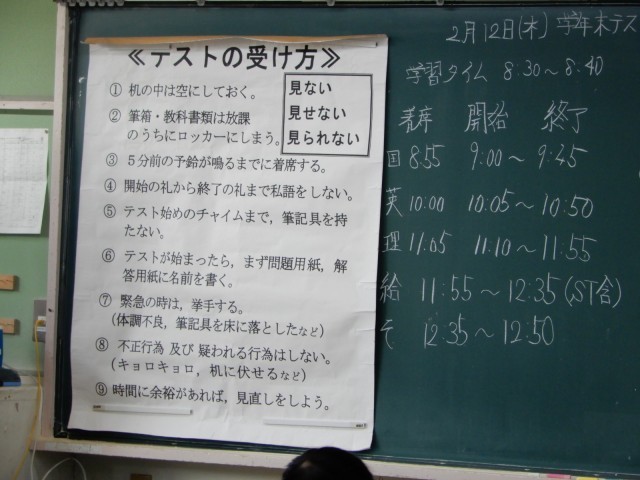 ≪テストの受け方≫
① 机の中は空にしておく。
② 筆箱・教科書類は放課
のうちにロッカーにしまう。
見ない
見せない
見られない
③ 5分前の予鈴が鳴るまでに着席する。
④ 開始の礼から終了の礼まで私語をしない。
⑤ テスト始めのチャイムまで,筆記具を持
たない。
⑥ テストが始まったら,まず問題用紙,解
答用紙に名前を書く。
⑦ 緊急の時は,挙手する。
(体調不良,筆記具を床に落としたなど)
⑧ 不正行為 及び 疑われる行為はしない。
(キョロキョロ,机に伏せるなど)
⑨ 時間に余裕があれば,見直しをしよう。
2月12日(木) 学年末テス
学習タイム 8:30~8:40
着席 開始 終了
国 8:55 9:00~9:45
英 10:00 10:05~10:50
理 11:05 11:10~11:55
給 11:55~12:35(ST含)
そ 12:35~12:50